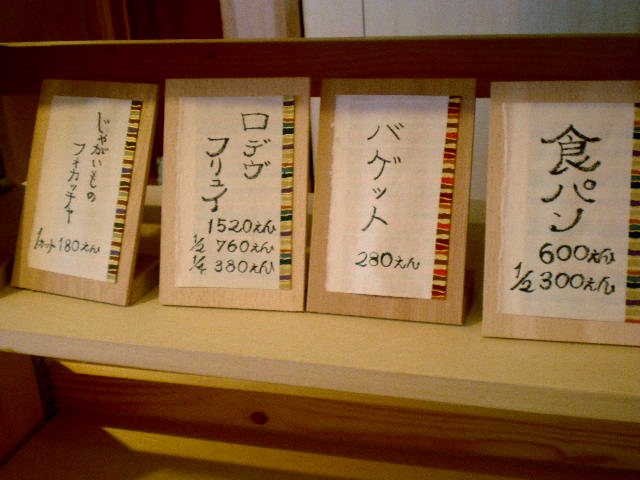 じゃがいもの
フォカッチャ
1カット180えん
ロデヴ
フリュイ
1520えん
1/2 760えん
1/4 380えん
バゲット
280えん
食パン
600えん
1/2 300えん